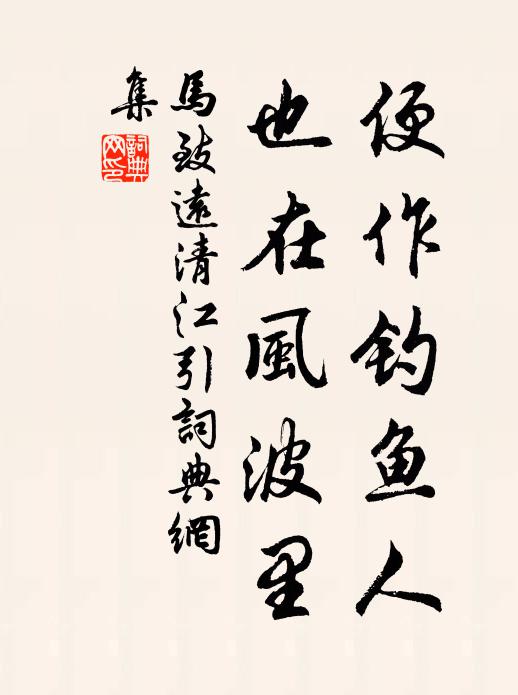 便作钓鱼人
也在風波里
馬致遠清江引詞典網
集
詞典
网印